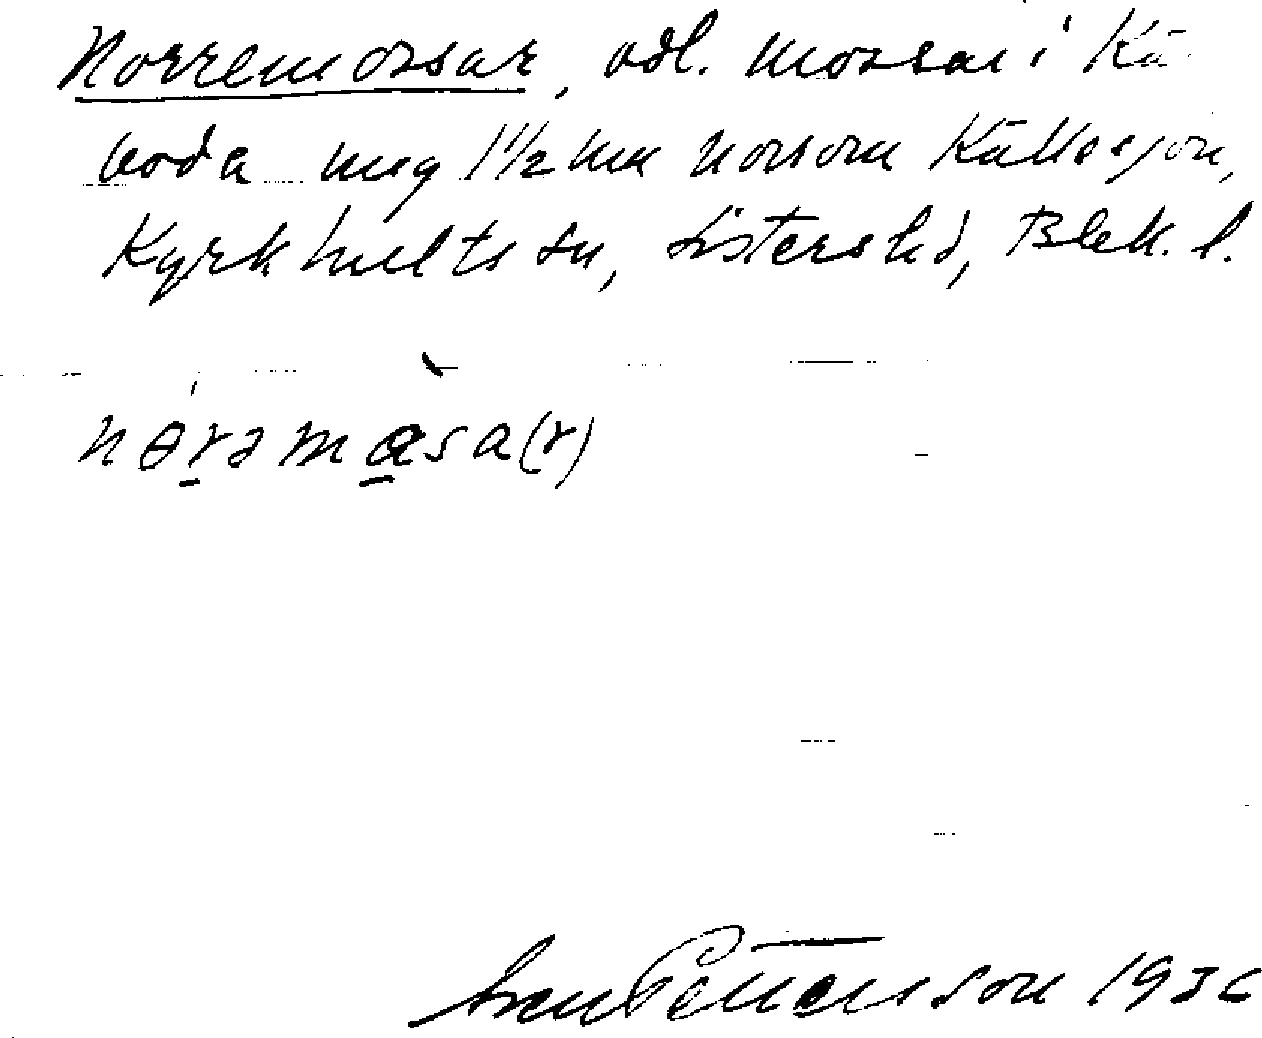 Norremossar, odl. mossar i Kå-
boda mug 1½ km norrom Källesjön,
Kyrkhults sn, Listers hd, Blek. l.
nørəmåsa(r)
Sven Pettersson 1936